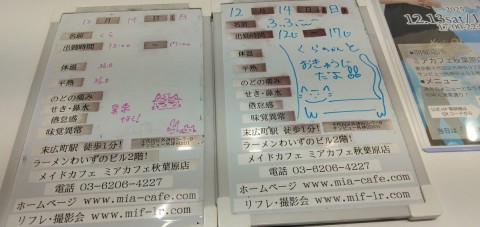 12月14日 日
名前 くら
出勤時間 12:00 ～ 17:00
体温 36.0
平熱 36.0
のどの痛み
せき・鼻水
倦怠感
味覚異常
末広町駅 徒歩1分!
ラーメンわいずのビル2階!
メイドカフェ ミアカフェ秋葉原店
電話 03-6206-4227
ホームページ www.mia-cafe.com
リフレ・撮影会 www.mif-lr.com
12月14日 日
名前
出勤時間 12 ～ 17
体温
平熱
のどの痛み
せき・鼻水
倦怠感
味覚異常
くらちゃんと
おきゅうじ
だよ!!
末広町駅 徒歩1分!
ラーメンわいずのビル2階!
メイドカフェ ミアカフェ秋葉原店
電話 03-6206-4227
ホームページ www.mia-cafe.com
リフレ・撮影会 www.mif-lr.com
2025
12.13sat/1
ミアカフェ秋葉原
メニュー